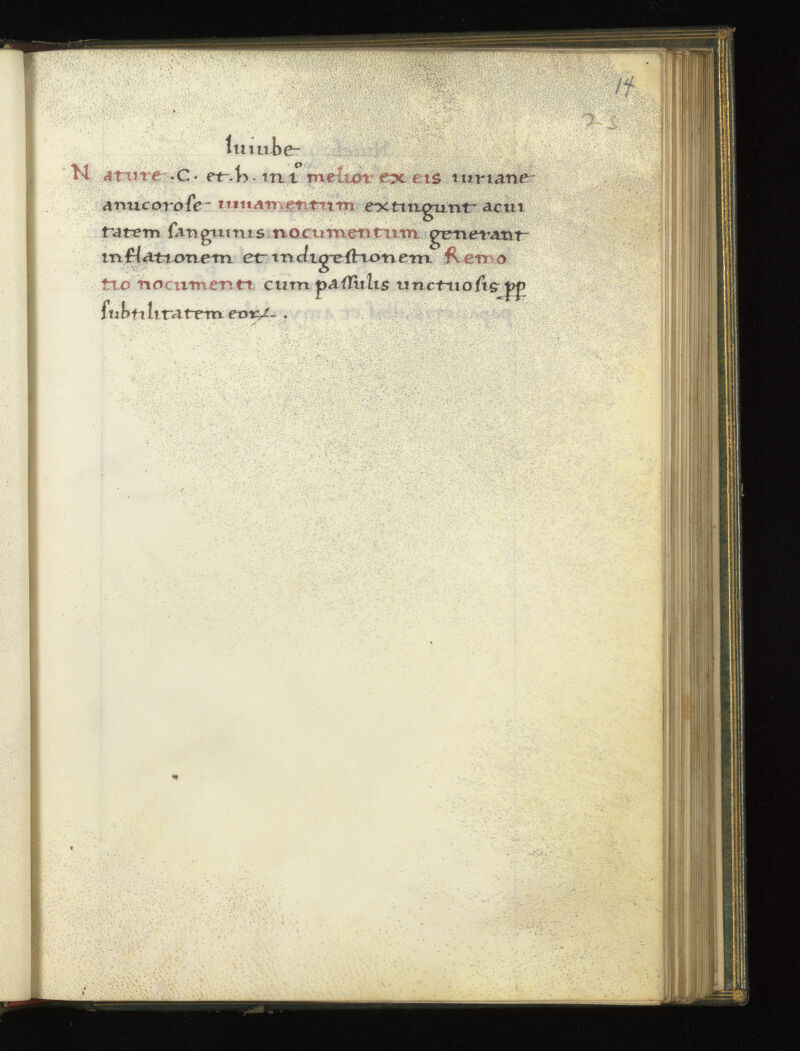 14
25
Iuiube
Nature .C. et .h. in i͒ melior ex eis iuriane
anucorose iuuamentum extingunt acui
tatem sanguinis nocumentum generant
inflationem et indigestionem Remo
tio nocumenti cum passulis unctuosis ꝓp
subtilitatem eoꝝ.